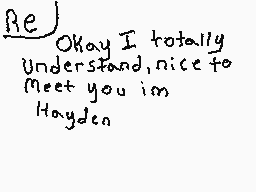 Re
Okay I totally
understand, nice to
meet you im
Hayden